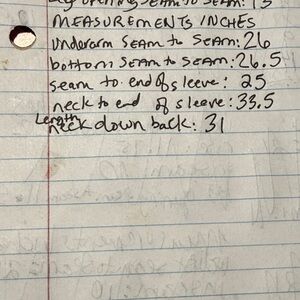 opening seam to seam: 15
MEASUREMENTS INCHES
underarm seam to seam: 26
bottom seam to seam: 26.5
seam to end of sleeve: 25
neck to end of sleeve: 33.5
Length
neck down back: 31